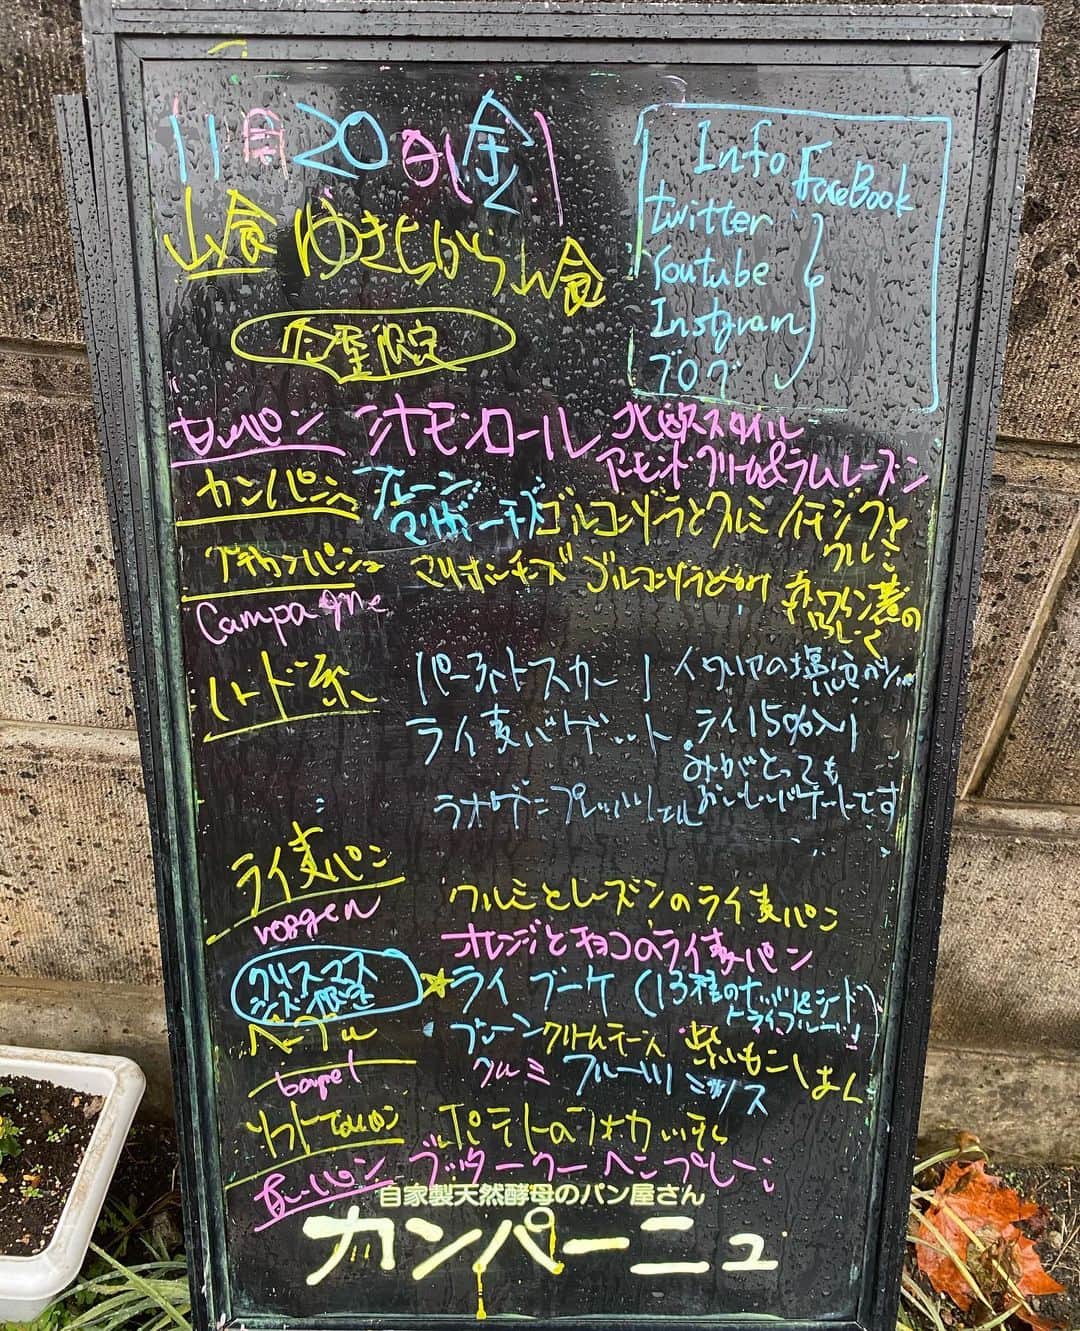 11月20日(金)
Info FaceBook
twitter
Youtube
Instgram
ブログ
山食 ゆきちから山食
数量限定
甘いパン シナモンロール 北欧スタイル
アーモンドクリーム&ラムレーズン
カンパーニュ プレーン
マリボーチーズ ゴルゴンゾラとクルミ イチジクと
クルミ
プチカンパーニュ マリボーチーズ ゴルゴンゾラとくるみ 赤ワン煮の
いちじく
Campagne
ハード系 イタリアの塩
ライ麦バゲット ライ15%入り
みがとっても
おいしいバゲートです
ライ麦パン
roggen
クルミとレーズンのライ麦パン
オレンジとチョコのライ麦パン
クリスマス
シーズン限定
★ライ ブーケ (13種のナッツ&シード
ドライフルーツ)
ベーグル プレーン 紫いもこしあん
bagel クルミ フルーツミックス
ソフト ポテトのフォカッチャ
甘いパン ブッタークーヘンプレーン
自家製天然酵母のパン屋さん
カンパーニュ